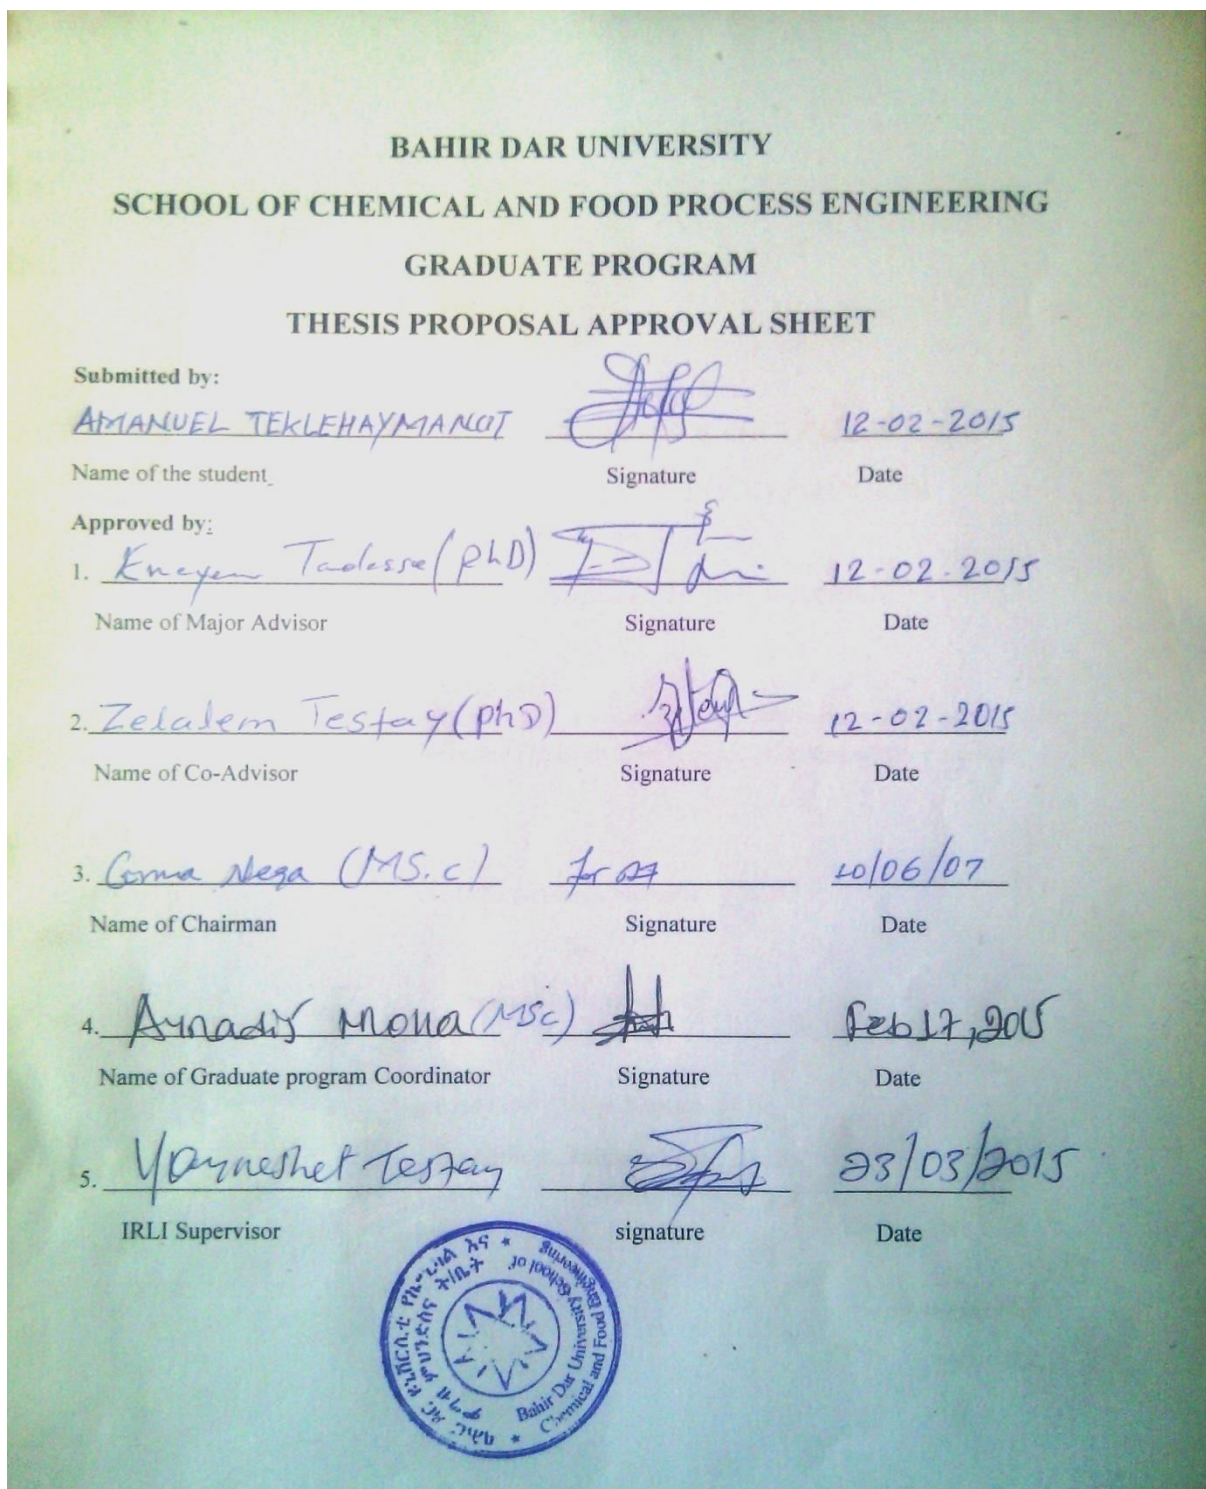 BAHIR DAR UNIVERSITY
SCHOOL OF CHEMICAL AND FOOD PROCESS ENGINEERING
GRADUATE PROGRAM
THESIS PROPOSAL APPROVAL SHEET
Submitted by:
AMANUEL TEKLEHAYMANOT 12-02-2015
Name of the student Signature Date
Approved by:
1. Tadesse (PhD) 12-02-2015
Name of Major Advisor Signature Date
2. Zelalem Tesfay (PhD) 12-02-2015
Name of Co-Advisor Signature Date
3. Nega (MS.c) for 10/06/07
Name of Chairman Signature Date
4. Molla (MSc) Feb 17, 2015
Name of Graduate program Coordinator Signature Date
5. Yayneshet Tesfay 23/03/2015
IRLI Supervisor signature Date
ባሕር ዳር ዩኒቨርሲቲ የኬሚካል እና
ምግብ ምህንድስና ት/ቤት
Bahir Dar University School of
Chemical and Food Engineering